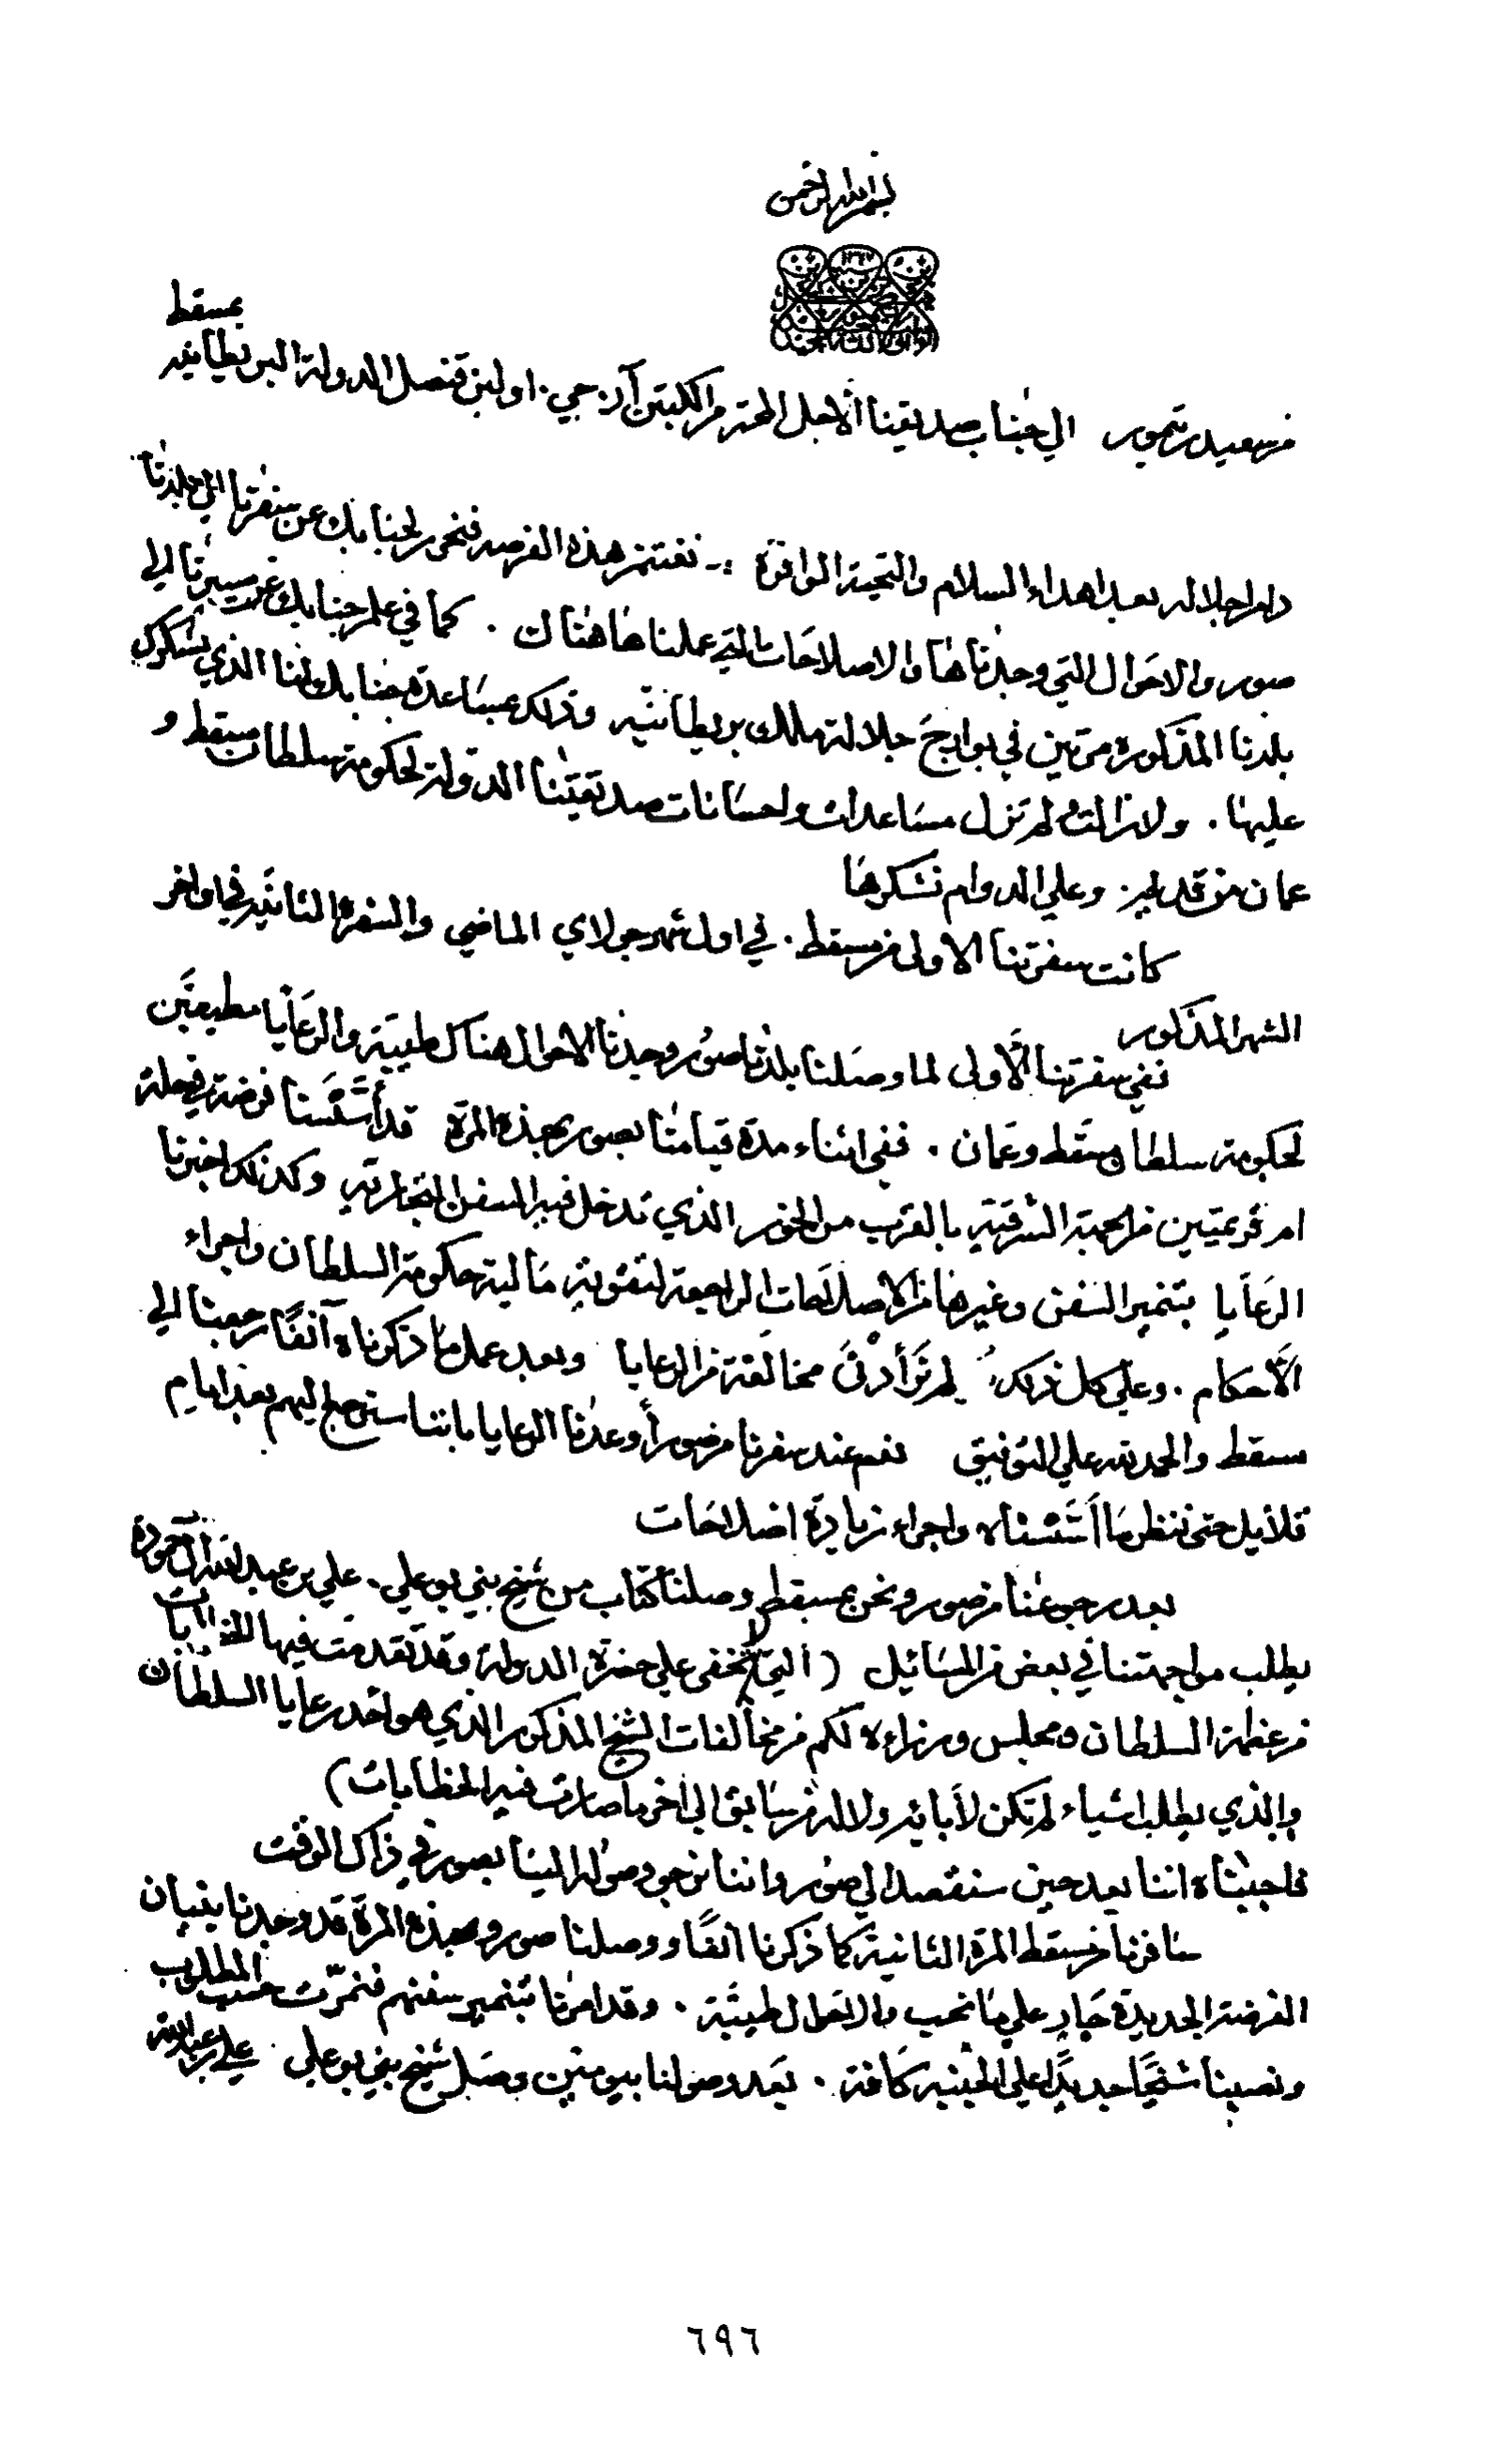 بسم الله الرحمن
من سعيد بن تيمور الي جناب صديقنا الأجل المحترم الكبتن آر. جي. اولبن قنصل الدولة البريطانيه بمسقط
دام اجلاله بعد اهداء السلام والتحية الوافرة :ـ نغتنم هذه الفرصه فنخبر لجنابك عن سفرتنا الي بلدتنا
صور والاحوال التي وجدناها والاصلاحات التي عملناها هناك . كما في علم جنابك عن مسيرنا الي
بلدنا المذكوره مرتين في بوارج جلالة ملك بريطانيه وذلك بمساعدة جنابك لنا الذي نشكرك
عليها . ولا زالت ولم تزل مساعدات واحسانات صديقتنا الدولة لحكومة سلطان مسقط و
عمان من قديم وعلي الدوام نشكرها
كانت سفرتنا الاولى من مسقط . في اول شهر جولاي الماضي والسفرة الثانيه في اواخر
الشهر المذكور
ففي سفرتنا الأولى لما وصلنا بلدنا صور وجدنا الاحوال هناك طيبة والرعايا مطيعين
لحكومة سلطان مسقط وعمان . ففي اثناء مدة قيامنا بصور بهذه المرة قد أسّسنا فرضة في محلة
ام قريمتين من الجهة الشرقيه بالقرب من الخور الذي تدخل فيه السفن التجاريه وكذلك اخبرنا
الرعايا بتنمير السفن وغيرها من الاصلاحات الراجعة لتقوية مالية حكومة السلطان واجراء
الأحكام . وعلي كل ذلك لم نر أدنى مخالفة من الرعايا وبعد عمل ما ذكرناه آنفًا رجعنا الي
مسقط والحمد لله علي التوفيق نعم عند سفرنا من صور أوعدنا الرعايا باننا سنرجع اليهم بعد ايام
قلائل حتى ننظر ما أسسناه واجراء زيادة اصلاحات
بعد رجوعنا من صور ونحن بمسقط وصلنا كتاب من شيخ بني بو علي . علي بن عبدالله آل حمودة
يطلب مواجهتنا في بعض من المسائل (التي لا تخفى علي حضرة الدولة وقد تقدمت فيها
من عظمة السلطان ومجلس وزراءه لكم من مخالفات الشيخ المذكور الذي هو احد رعايا السلطان
والذي يطلب اشياء لم تكن لأبائه ولا له من سابق الى آخر ما صارت فيه الخطابات)
فاجبناه اننا بعد حين سنقصد الى صور واننا نرجو وصوله الينا بصور في ذاك الوقت
سافرنا من مسقط المرة الثانية كما ذكرنا آنفًا ووصلنا صور وبهذه المرة قد وجدنا بنيان
الفرضة الجديدة جارٍ علي ما نحب والاحوال طيبة . وقد امرنا بتنمير سفنهم فنمّرت حسب المطلوب
ونصبنا شيخًا جديدًا علي الجنبه كافة . بعد وصولنا بيومين وصل شيخ بني بو علي علي بن عبدالله
٦٩٦